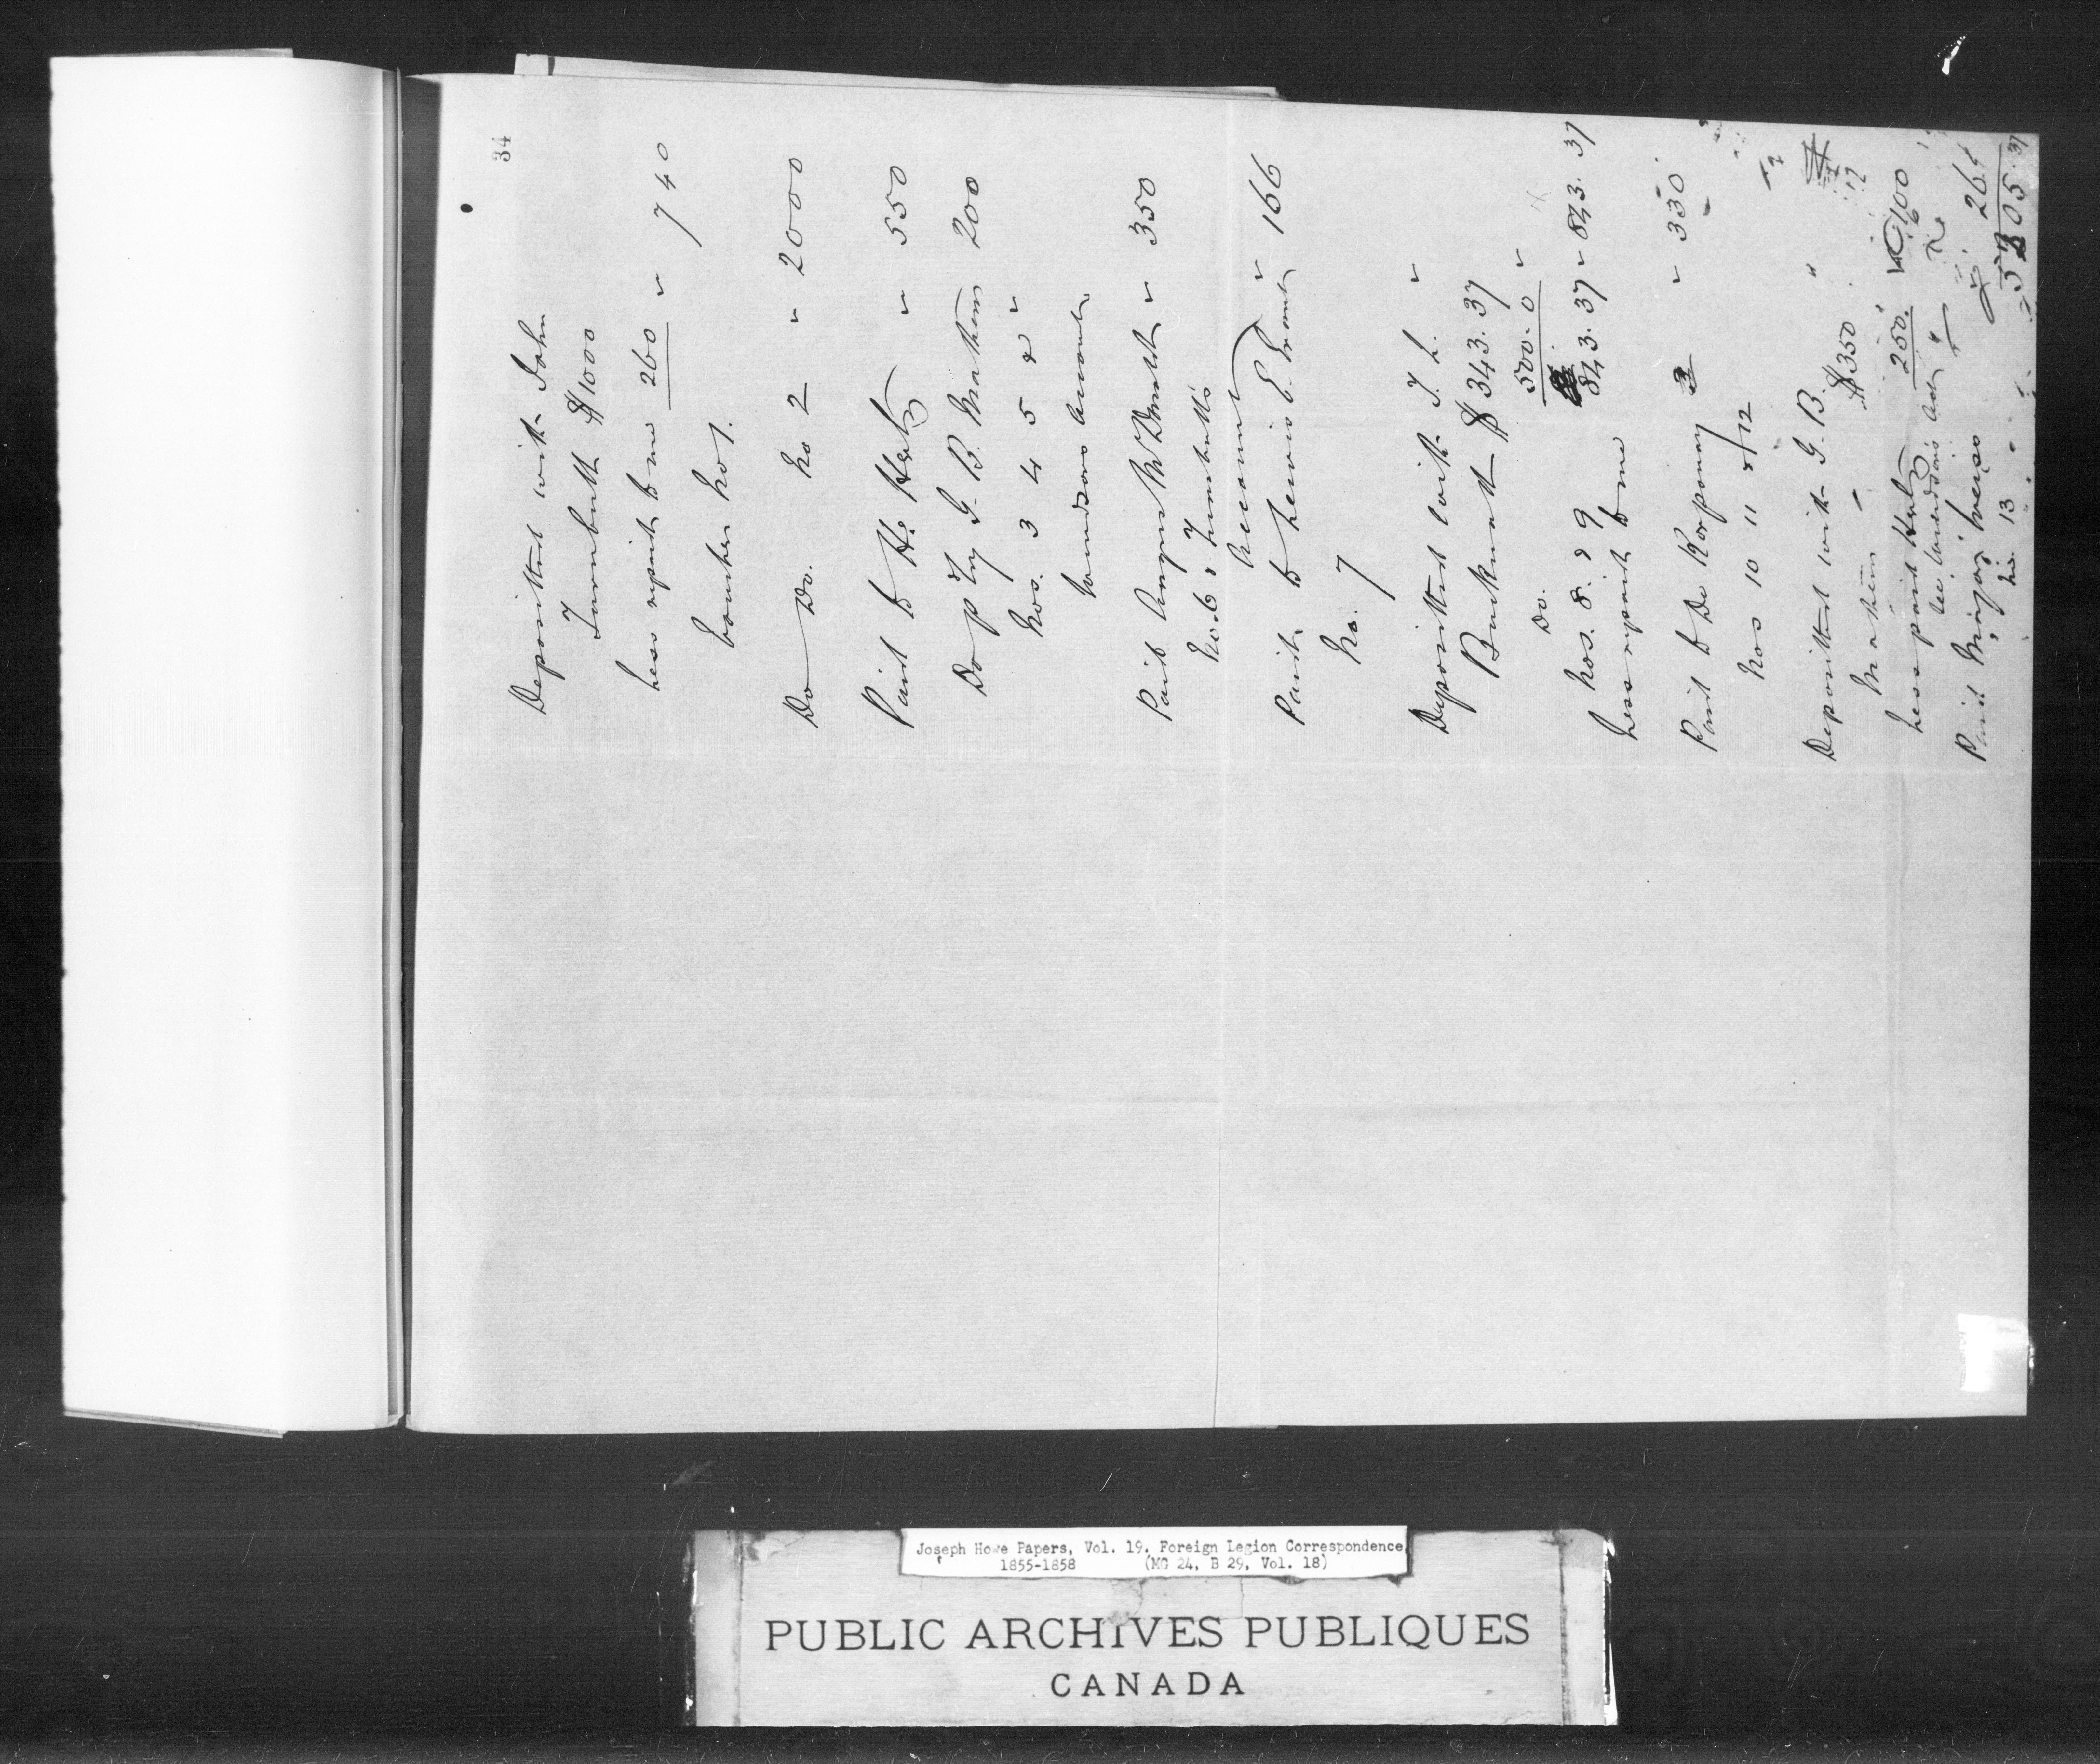 34
Deposited with John
Turnbull $1000
Less repaid to me 260 " 740
Voucher No 1.
Do Do. No 2 " 2000
Paid to H. Hertz " 550
Do p Dy G. B. Mathew 200
Nos. 3 4 5 & "
Accounts
Paid Angus McDonald " 350
No. 6 & Turnbull's
Account
Paid to Lewis E. " 166
No. 7
Deposited with T. L. "
$ 343.37
Do. 500.0 "
Nos. 8. & 9 843.37 " 843.37
Less repaid to me
Paid to De Korponay " 330
Nos 10 11 & 12
Deposited with G. B. "
Mathew - $350
Less paid Hertz 250. 100
Paid Major 26
No. 13
05.37
Joseph Howe Papers, Vol. 19. Foreign Legion Correspondence,
1855-1858 (MG 24, B 29, Vol. 18)
PUBLIC ARCHIVES PUBLIQUES
CANADA